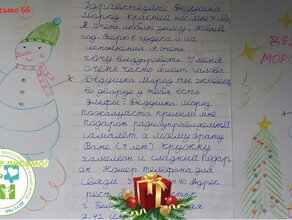 письмо 66
Здравствуйте Дедушка
Мороз красный нос.
Я очень люблю зиму, Новый
год. Верю в чудеса и их
исполнения. Я очень
хочу выздороветь. У меня
очень часто болит голова.
Дедушка Мороз ты живёшь
во дворце у тебя есть
эльфы? Дедушка Мороз
пожалуйста принеси мне
подарок радиоуправляемый
самолёт а моему брату
Ване (5 лет) кружку
хамелеон и сладкий подар
ок. Номер телефона для
связи
Адрес
Д. 42
ДЕД
МОРО
письмо!